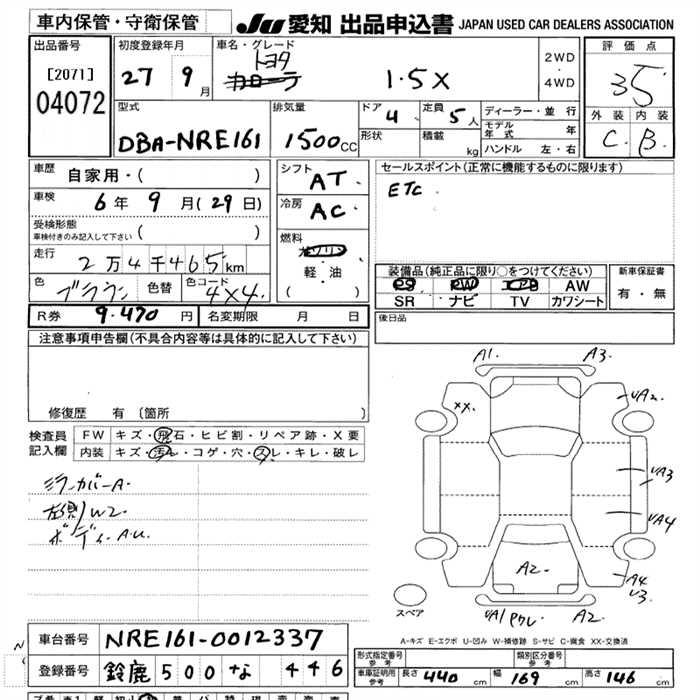 車内保管・守衛保管 JU 愛知 出品申込書 JAPAN USED CAR DEALERS ASSOCIATION
出品番号 [2071] 04072
初度登録年月 27 9月
車名・グレード トヨタ カローラ 1.5X
2WD
4WD
評価点 3.5
外装 内装
C. B.
型式 DBA-NRE161
排気量 1500cc
ドア 4
形状
定員 5人
積載 kg
ディーラー・並行
モデル年式 年
ハンドル 左・右
車歴 自家用・( )
車検 6年 9月(29日)
受検形態
車検付きのみ記入して下さい ( )
走行 2万4千465km
色 ブラウン 色替 色コード 4X4.
シフト AT.
冷房 AC.
燃料 ガソリン・軽・油 ( )
セールスポイント(正常に機能するものに限ります)
ETC
装備品(純正品に限り○をつけてください)
PS PW エアB AW
SR ナビ TV カワシート
新車保証書
有・無
後日品
R券 9.470円 名変期限 月 日
注意事項申告欄(不具合内容等は具体的に記入して下さい)
修復歴 有(箇所 )
検査員記入欄
FW キズ・飛石・ヒビ割・リペア跡・X要
内装 キズ・汚レ・コゲ・穴・スレ・キレ・破レ
ミラーカバーA.
左側W2.
ボディA.U.
A1. A3.
XX. UA2.
UA3
UA4
A2. A4
U3.
UA1 ワレ. A2.
スペア
A-キズ E-エクボ U-凹み W-補修跡 S-サビ C-腐食 XX-交換済
車台番号 NRE161-0012337
登録番号 鈴鹿 500 な 446
形式指定番号 参考
類別区分番号 参考
車庫証明用 参考 長さ 440cm 幅 169cm 高さ 146cm